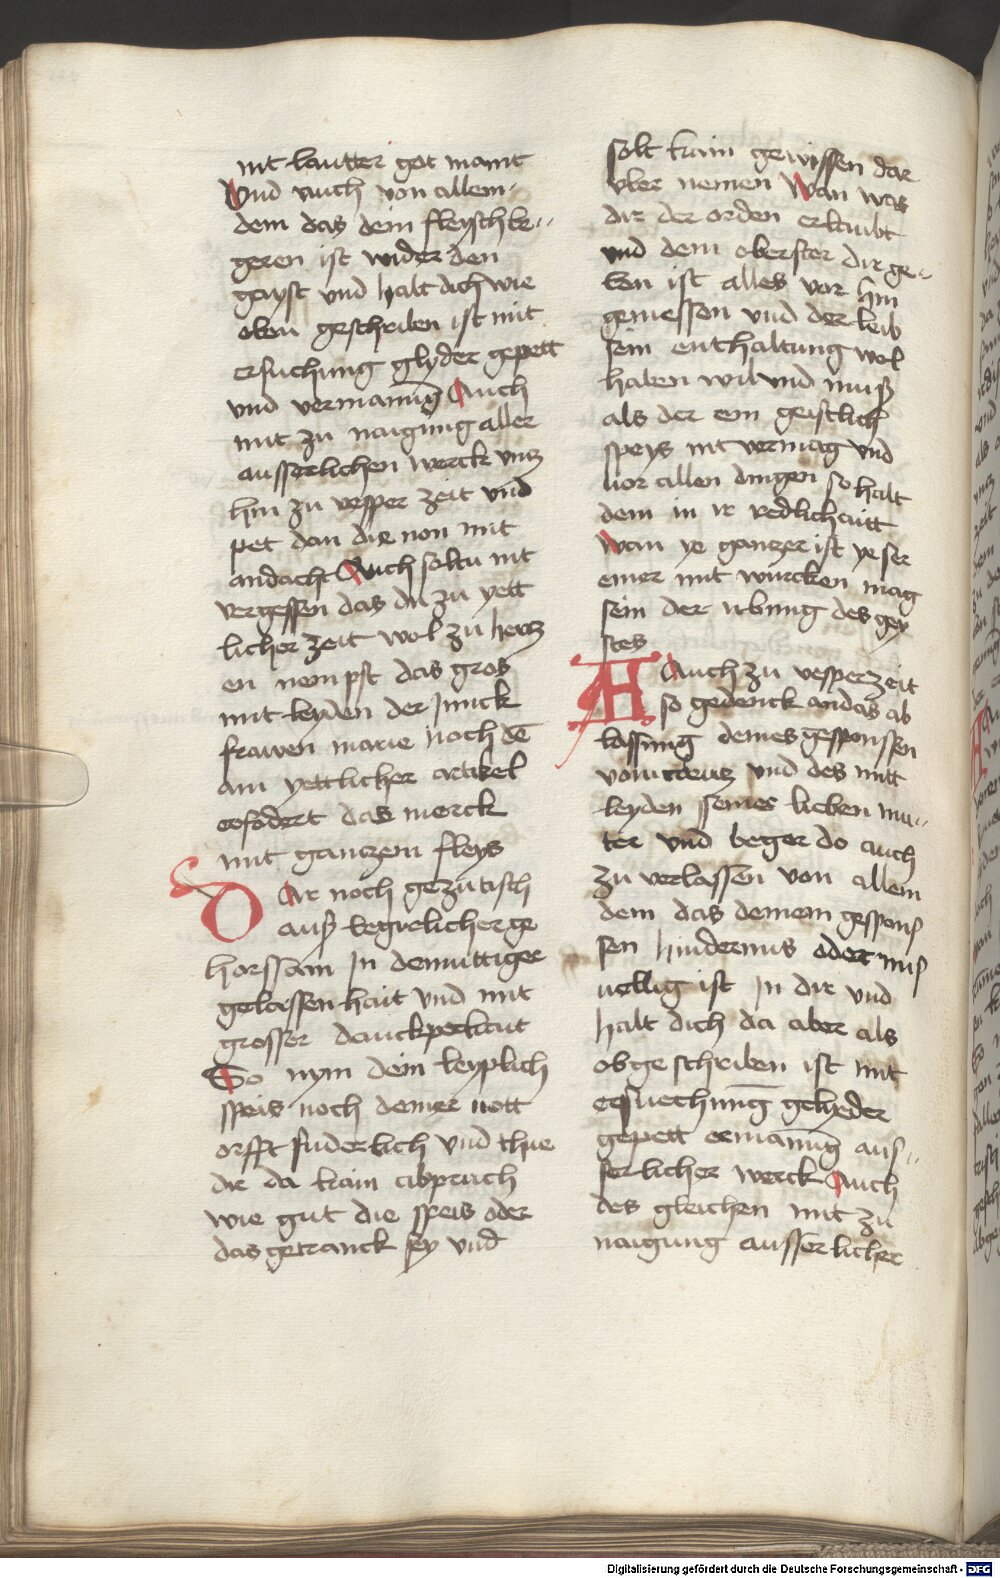 nit lautter got maint
Vnd auch von allem
dem das dein fleysch be-
geren ist wider den
gayst vnd halt dich wie
oben geschriben ist mit
ersuchung glyder gepett
vnd vermanūg Auch
mit zu naigung aller
ausserlichen werck vntz
hin zu vesper zeit vnd
pet dan die non mit
andacht Auch soltu nit
vergessen das du zu yett
licher zeit wol zu hertz
en nempst das gros
mit leyden der Junck
frawen marie noch dē
am yettlicher artikel
eefodert das merck
mit ganczem fleys
DAr noch ge zu tisch
auß begirlicher ge
horssam In demuttiger
gelassenhait vnd mit
grosser danckperkait
So nym dein leyplich
speis noch deiner nott
orfft fuderlich vnd thue
dir da kain abpruch
wie gut die speis oder
das getranck sey vnd
solt kain gewissen dar
vber nemen Wan was
dir der orden erlaubt
vnd dem oberster dir ge-
ben ist alles vor hin
gemessen vnd der leib
sein enthaltung wol
haben wil vnd muß
als der ein geistlich
speys nit vermag vnd
vor allen dingen so halt
dem in ir redlichaitt
Wan ye ganzer ist ye ser
einer mit wurcken mag
sein der vbung des gey
stes
AAuch zu vesperzeit
so gedenck an das ab
lassung deines gesponssen
vom creutz vnd des mitt
leyden seiner lieben mu-
ter vnd beger do auch
zu verlassen von allem
dem das deinem gespons
sen hindernus oder mis
uellig ist In dir vnd
halt dich da aber als
obgeschriben ist mit
eesuechung gelyeder
gepett ermanūg aus-
serlicher werck Auch
des gleichen mit zu
naigung ausserlicher
Digitalisierung gefördert durch die Deutsche Forschungsgemeinschaft - DFG